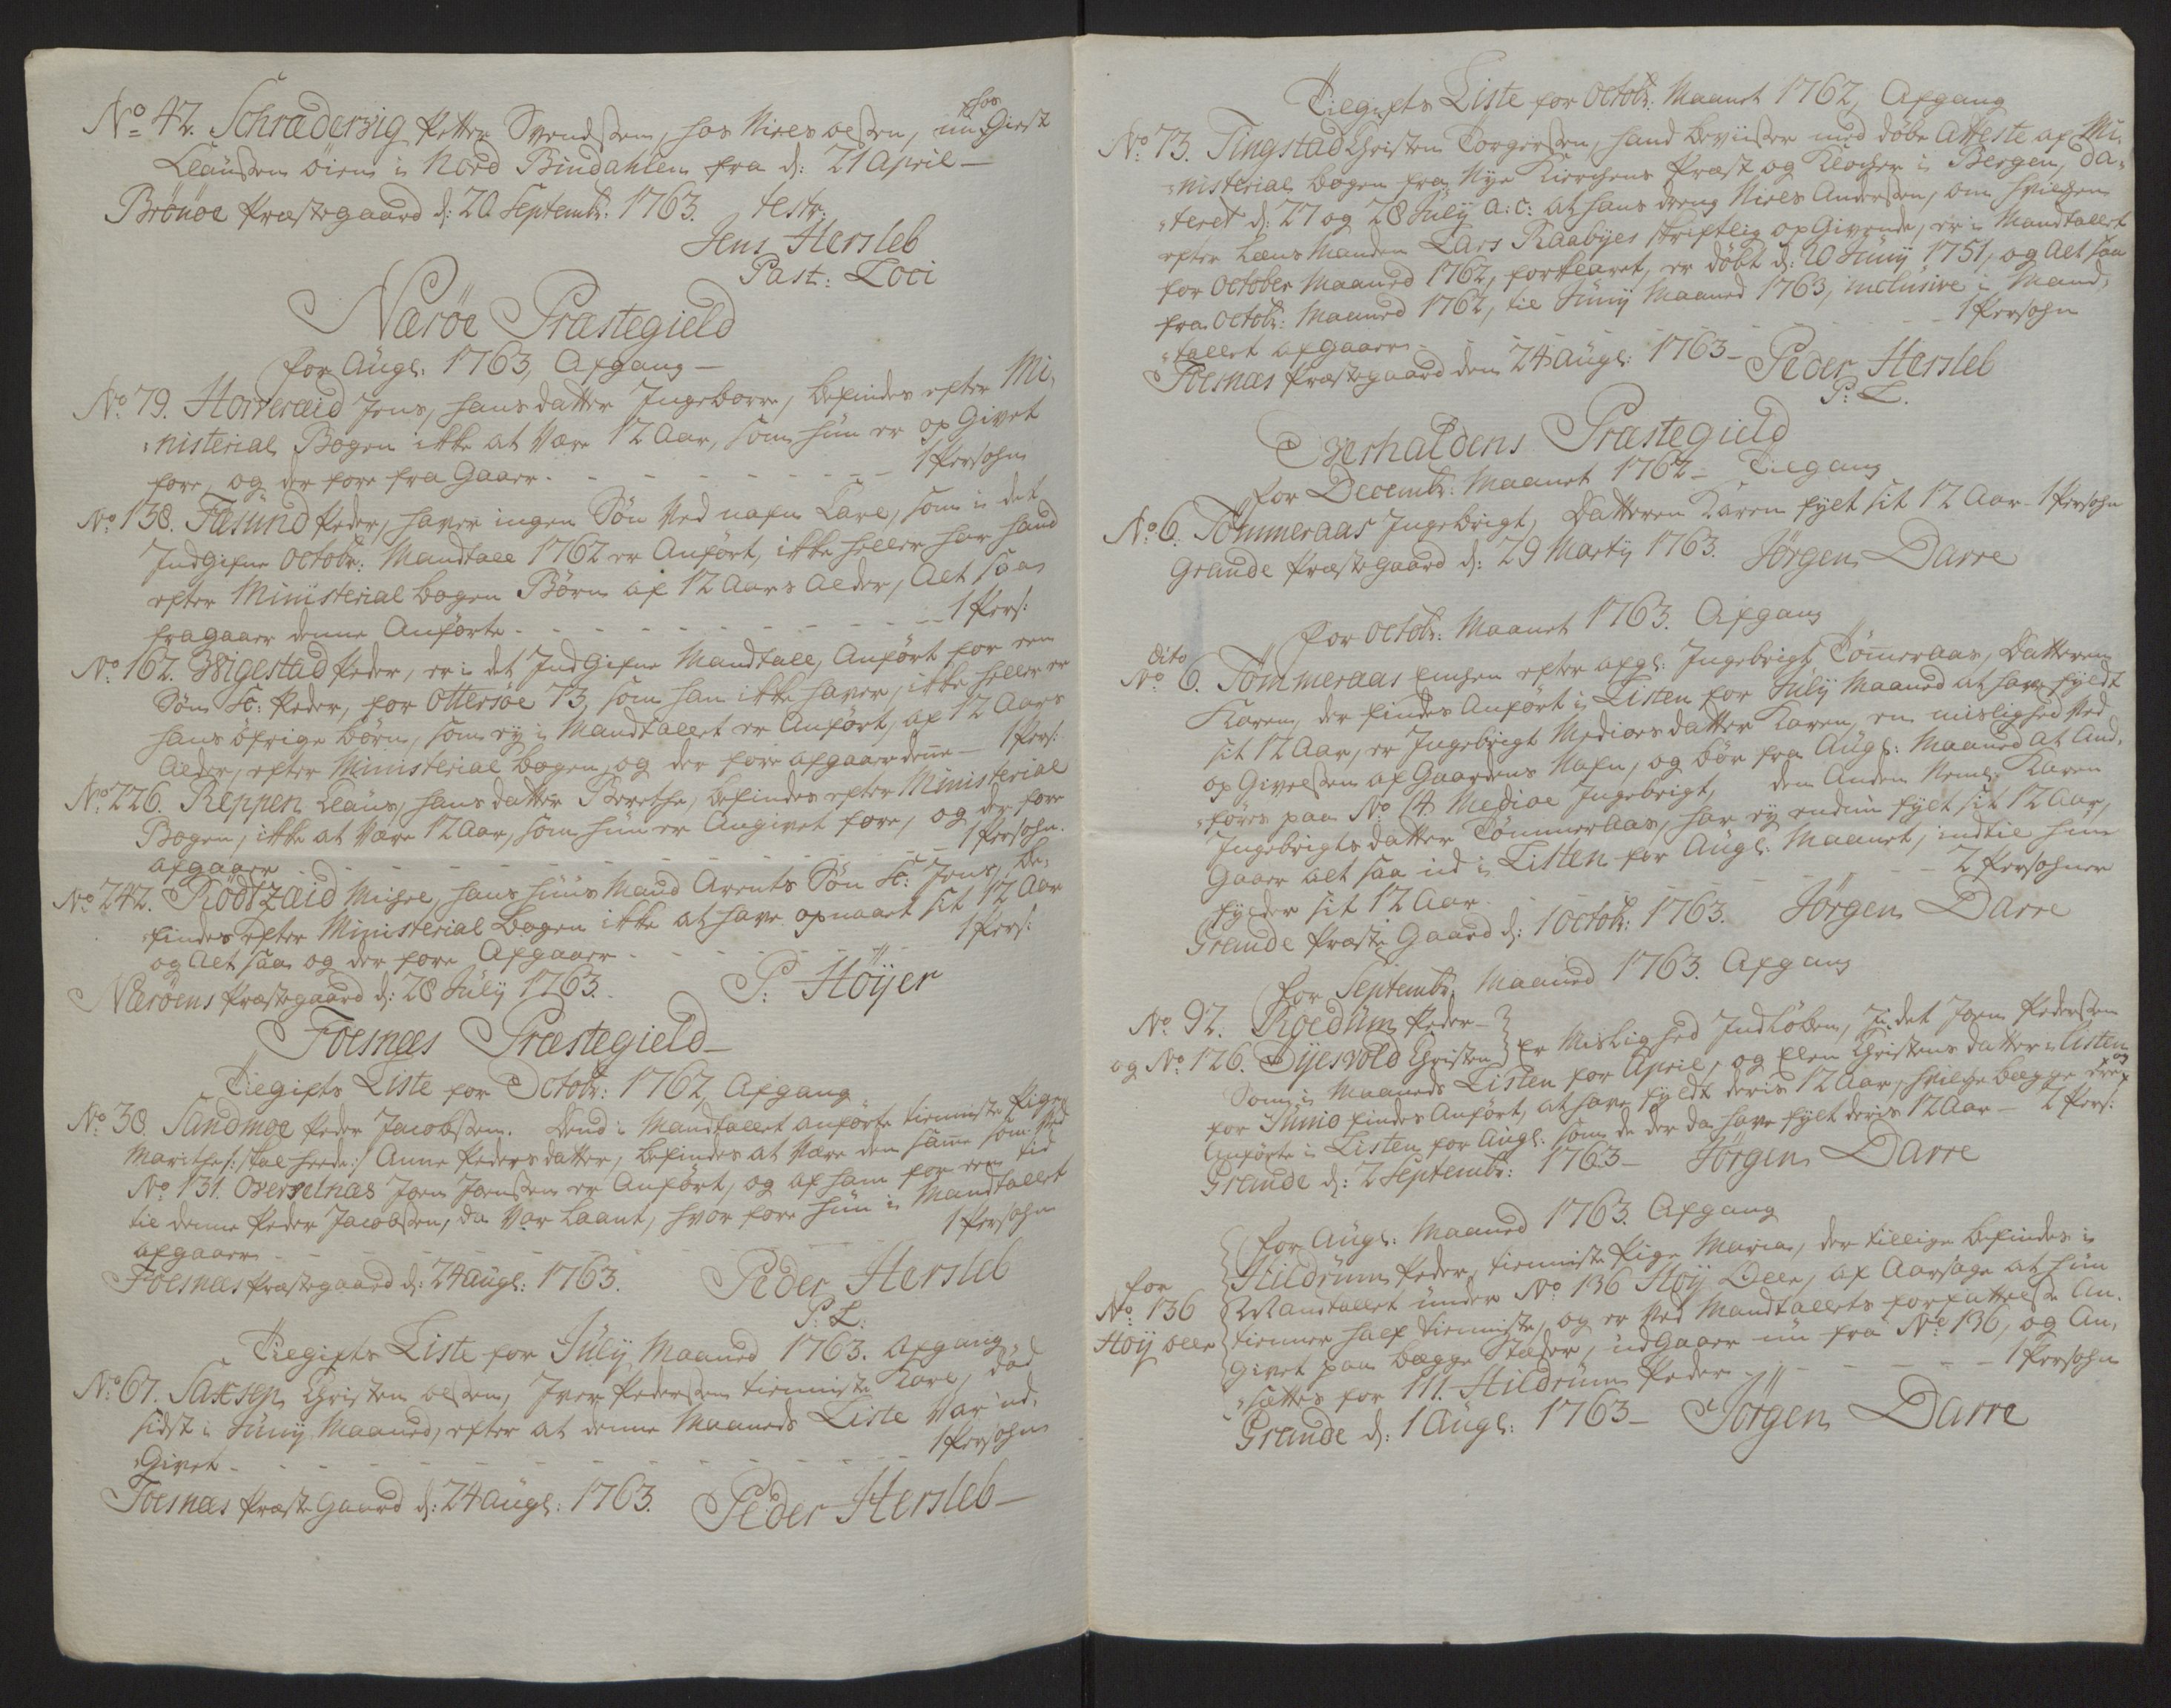 No 42. Schradervig Petter Svendssen, hos Niels olsen, nu hos Giert
Claussen öien i Nord Bindahlen fra d: 21 April —
Brönöe Præstegaard d: 20 Septembr: 1763. testr:
Jens Hersleb
Past: Loci
Næröe Præstegield
for Augl. 1763, Afgang —
No 79. Horveræid Jens, hans datter Ingeborre, befindes efter Mi-
nisterial Bogen ikke at være 12 Aar, som hun er op Givet
fore, og der fore fra Gaaer. - - - 1 Persohn
No 138. Fæsund Peder, haver ingen Søn ved nafn Carl, som i det
IndGifne Octobr: Mandtall 1762 er Anført, ikke heller har hand
efter Ministerial bogen Börn af 12 Aars Alder, Alt saa
fragaaer denne Anførte - - - 1 Pers:
No 162. Wigestad Peder, er i det IndGifne Mandtall, Anført for een
Søn Sc: Peder, for Ottersøe 73, som han ikke haver, ikke heller er
hans øfrige børn, som ey i Mandtallet er Anført, af 12 Aars
Alder, efter Ministerial bogen, og der fore afgaaer denne — 1 Pers:
No 226. Reppen Claus, hans datter Berethe, befindes efter Ministerial
Bogen, ikke at være 12 Aar, som hun er Angivet fore, og der fore
afgaaer - - - 1 Persohn.
No 242. Rödtzæid Michel, hans huus Mand Arents Søn Sc: Jens, be-
findes efter Ministerial bogen ikke at have opnaaet sit 12 Aar
og Alt saa og der fore Afgaaer - - - 1 Pers:
Næröens Præstegaard d: 28 July 1763. P: Höyer
Foesnæs Præstegield —
Tilgifts Liste for Octobr: 1762, Afgang
No 38. Sandmoe Peder Jacobssen. Dend i Mandtallet anførte tienniste Pige
Marithe /: skal heede :/ Anne Pedersdatter, befindes at være den samme som ved
No 131. Overvelnæs Joen Joenssen er Anført, og af ham for een tid
til denne Peder Jacobssen, da var laant, hvor fore hun i Mandtallet
afgaaer - - - 1 Persohn
Foesnæs Præstegaard d: 24 Augl: 1763. Peder Hersleb
P: L:
Tilgifts Liste for July Maaned 1763. Afgang
No 67. Saxsen Christen olsen, Iver Pederssen tienniste Karl, död
sidst i Juny Maaned, efter at denne Maaneds Liste var ud-
Givet - - - 1 Persohn
Foesnæs Præste Gaard d: 24 Augl: 1763. Peder Hersleb —
Tilgifts Liste for Octobr: Maanet 1762, Afgang
No 73. Tingstad Christen Torgersen, hand beviiser med döbe Atteste af Mi-
nisterial bogen fra Nye Kierchens Præst og Klocher i Bergen, da-
teret d: 27 og 28 July a: c: at hans dreng Niels Andersen, om hvilchen
efter Lænsmanden Lars Raabyes skriftlig opGivende, er i Mandtallet
for October Maaned 1762, forklaret, er döbt d: 20 Juny 1751, og Alt saa
fra Octobr: Maaned 1762, til Juny Maaned 1763, inclusive i Mand-
tallet afgaaer - - - 1 Persohn
Foesnæs Præstegaard den 24 Augl: 1763 — Peder Hersleb
P: L.
Overhaldens Præstegield
for Decembr: Maanet 1762 — Tilgang
No 6. Tømmeraas Ingebrigt, Datteren Karen fylt sit 12 Aar - 1 Persohn
Grande Præstegaard d: 29 Marty 1763. Jörgen Darre
for Octobr: Maanet 1763. Afgang
dito
No 6. Tømmeraas Enchen efter afgl: Ingebrigt Tömeraas, Datteren
Karen, der findes Anført i Listen for July Maaned at have fyldt
sit 12 Aar, er Ingebrigt Mediaes datter Karen, en mislighed ved
op Givelsen af Gaardens Nafn, og bör fra Augl: Maaned at And-
føres paa No 14 Mediae Ingebrigt, den Anden Neml: Karen
Ingebrigtsdatter Tømmeraas, har ey endnu fylt sit 12 Aar,
Gaaer Alt saa ud i Listen for Augl: Maanet, indtil hun
fylder sit 12 Aar. - - - 2 Persohner
Grande Præste Gaard d: 1 Octobr: 1763. Jörgen Darre
for Septembr: Maaned 1763. Afgang
No 92. Roedum Peder —
og No 126. Dyesvold Christen } Er Mislighed Indlöben, Thi det Joen Pedersen
Som i Maaneds Listen for April, og Elen Christens datter i Listen
for Junio findes Anført, at have fyldt deris 12 Aar, hvilche begge og
Anførte i Listen for Augl: som de der da have fylt deris 12 Aar — 2 Pers:
Grande d: 2 Septembr: 1763 — Jörgen Darre
for Augl: Maaned 1763. Afgang
for
No 136
Höy olle
Hildrum Peder, tienniste Pige Maria, der tillige befindes i
Mandtallet under No 136 Höy Olle, af Aarsage at hun
tienner half tienniste, og er ved Mandtallets forfattelse An-
givet paa begge Stæder, udGaaer nu fra No 136, og An-
sættes for 111. Hildrum Peder - - - 1 Persohn
Grande d: 1 Augl: 1763 — Jörgen Darre